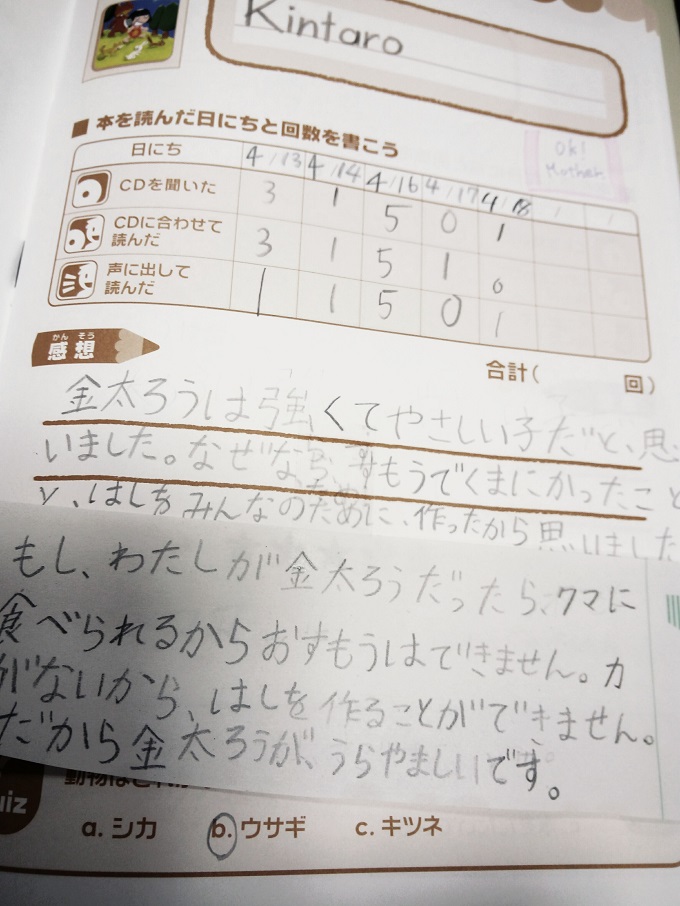 Kintaro
■ 本を読んだ日にちと回数を書こう
Ok!
Mother
日にち 4/13 4/14 4/16 4/17 4/18 / /
CDを聞いた 3 1 5 0 1
CDに合わせて
読んだ 3 1 5 1 0
声に出して
読んだ 1 1 5 0 1
かん そう
感想
合計( 回)
金太ろうは強くてやさしい子だと、思
いました。なぜなら、すもうでくまにかったこと
と、はしをみんなのために、作ったから思いました
もし、わたしが金太ろうだったら、クマに
食べられるからおすもうはできません。カ
がないから、はしを作ることができません。
だから金太ろうが、うらやましいです。
iz
a. シカ b. ウサギ c. キツネ